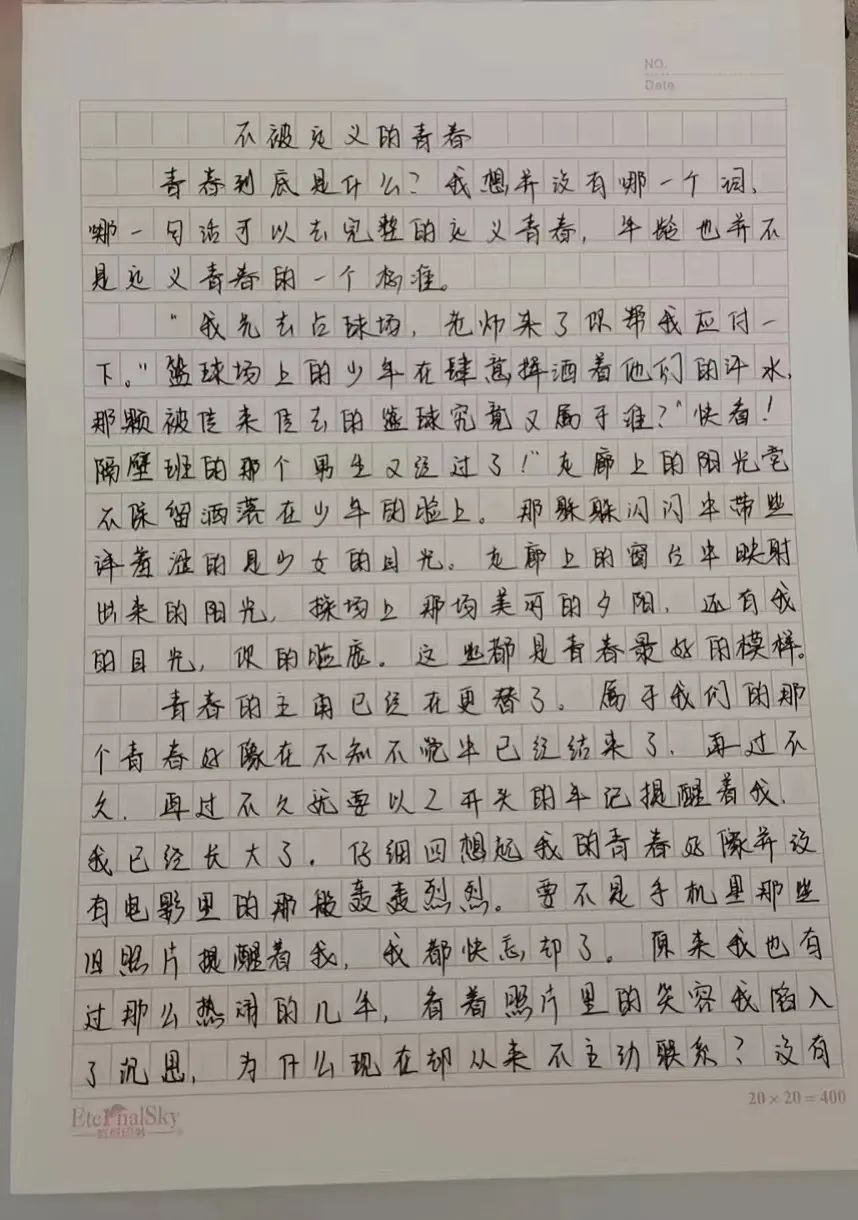 NO.
Date
不被定义的青春
青春到底是什么？我想并没有哪一个词，
哪一句话可以去完整的定义青春，年龄也并不
是定义青春的一个标准。
“我先去占球场，老师来了你帮我应付一
下。”篮球场上的少年在肆意挥洒着他们的汗水，
那颗被传来传去的篮球究竟又属于谁？“快看！
隔壁班的那个男生又经过了！”走廊上的阳光毫
不保留洒落在少年的脸上。那躲躲闪闪中带些
许羞涩的是少女的目光。走廊上的窗台中映射
出来的阳光，操场上那场美丽的夕阳，还有我
的目光，你的脸庞。这些都是青春最好的模样。
青春的主角已经在更替了。属于我们的那
个青春好像在不知不觉中已经结束了，再过不
久，再过不久就要以2开头的年记提醒着我，
我已经长大了。仔细回想起我的青春好像并没
有电影里的那般轰轰烈烈。要不是手机里那些
旧照片提醒着我，我都快忘却了。原来我也有
过那么热闹的几年，看着照片里的笑容我陷入
了沉思，为什么现在却从来不主动联系？没有
20×20=400
EternalSky